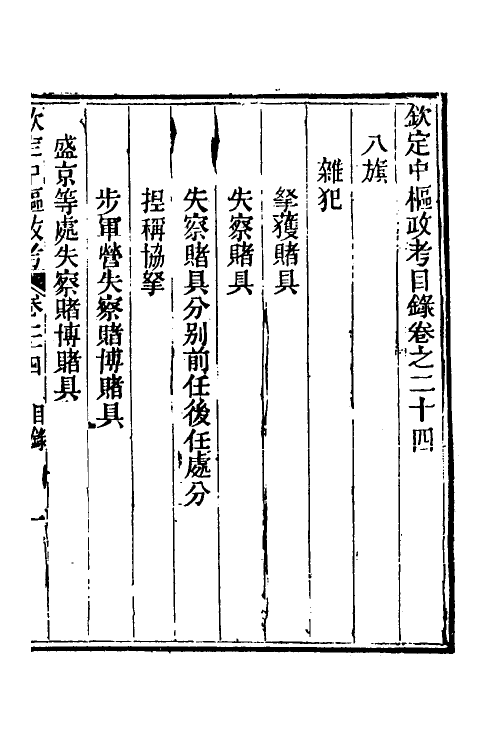 欽定中樞政考目錄卷之二十四
八旗
雜犯
拏獲賭具
失察賭具
失察賭具分别前任後任處分
揑稱協拏
步軍營失察賭博賭具
盛京等處失察賭博賭具
欽定中樞政考 卷二十四 目錄 一